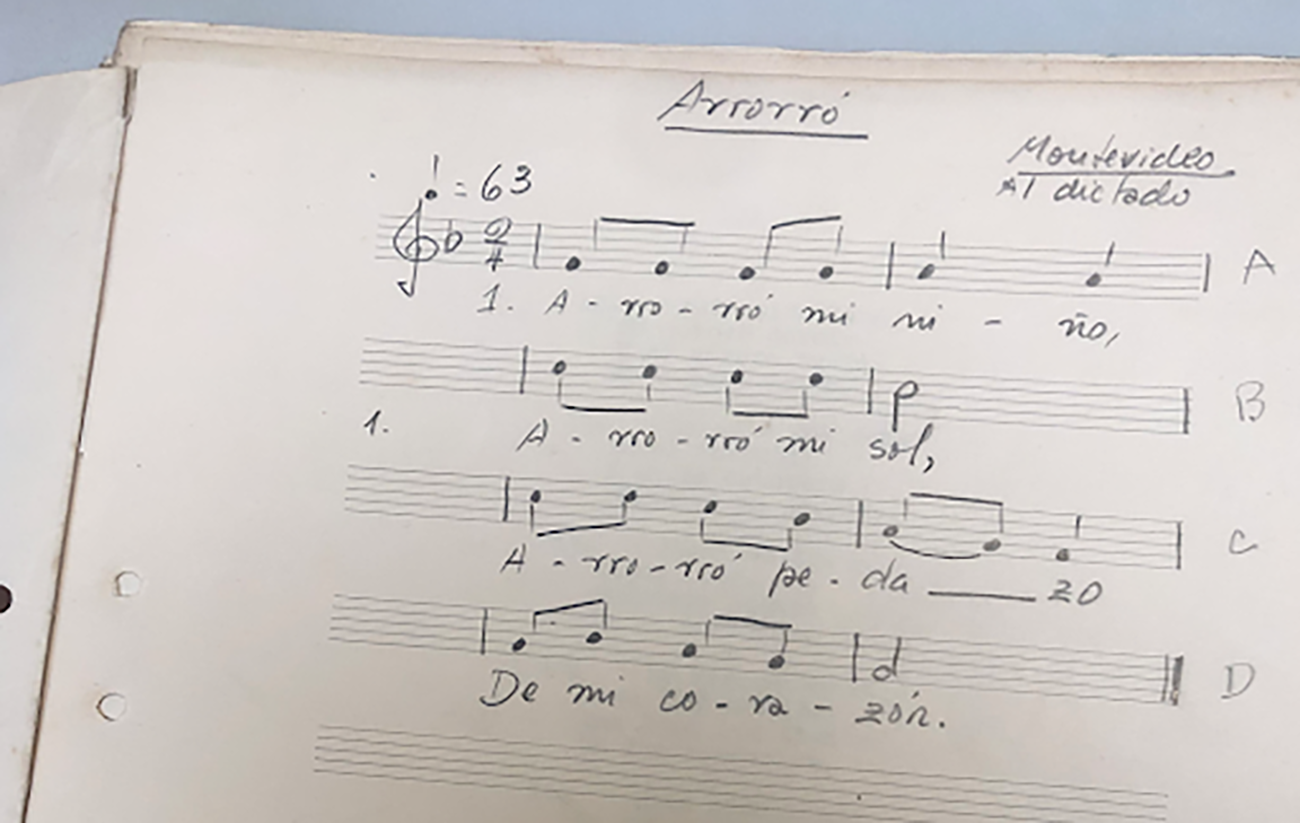 Arrorró
Montevideo
Al dictado
= 63
2/4
A
1. A - rro - rró mi ni - ño,
B
1. A - rro - rró mi sol,
C
A - rro - rró pe - da ___ zo
D
De mi co - ra - zón.